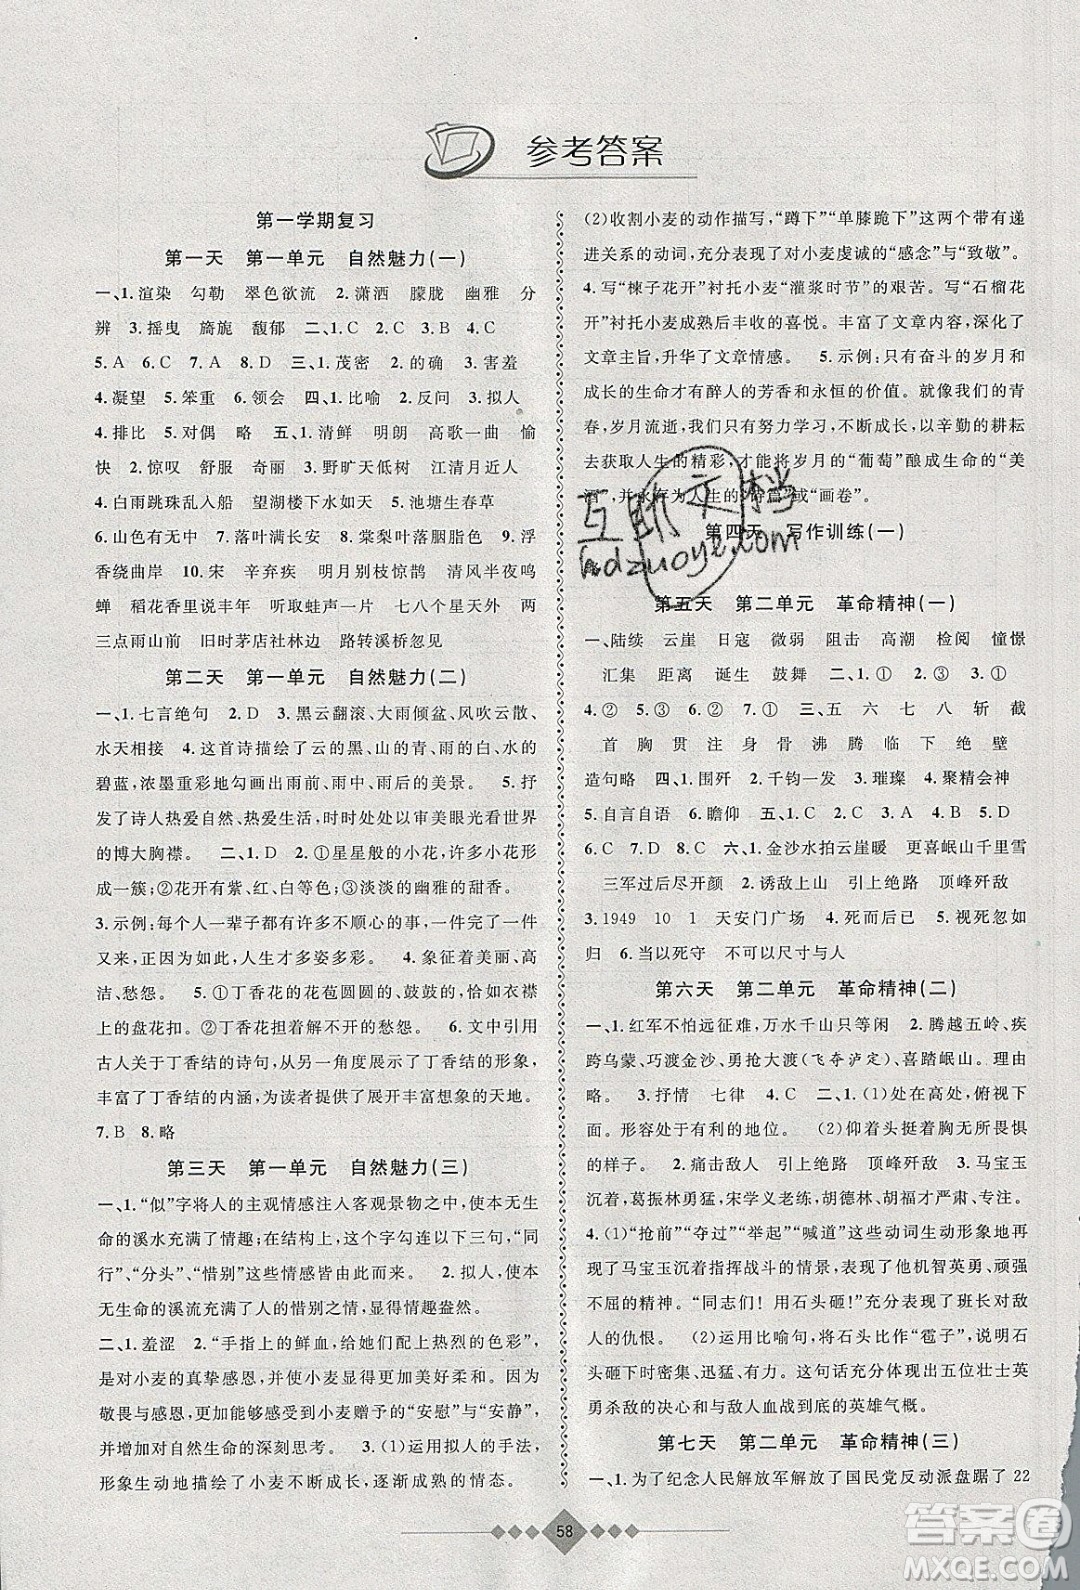 参考答案
第一学期复习
第一天　第一单元　自然魅力(一)
一、1.渲染　勾勒　翠色欲流　2.潇洒　朦胧　幽雅　分
辨　3.摇曳　旖旎　馥郁　二、1.C　2.B　3.C　4.C
5.A　6.C　7.A　8.D　三、1.茂密　2.的确　3.害羞
4.凝望　5.笨重　6.领会　四、1.比喻　2.反问　3.拟人
4.排比　5.对偶　略　五、1.清鲜　明朗　高歌一曲　愉
快　2.惊叹　舒服　奇丽　3.野旷天低树　江清月近人
4.白雨跳珠乱入船　望湖楼下水如天　5.池塘生春草
6.山色有无中　7.落叶满长安　8.棠梨叶落胭脂色　9.浮
香绕曲岸　10.宋　辛弃疾　明月别枝惊鹊　清风半夜鸣
蝉　稻花香里说丰年　听取蛙声一片　七八个星天外　两
三点雨山前　旧时茅店社林边　路转溪桥忽见
第二天　第一单元　自然魅力(二)
一、1.七言绝句　2.D　3.黑云翻滚、大雨倾盆、风吹云散、
水天相接　4.这首诗描绘了云的黑、山的青、雨的白、水的
碧蓝,浓墨重彩地勾画出雨前、雨中、雨后的美景。　5.抒
发了诗人热爱自然、热爱生活,时时处处以审美眼光看世界
的博大胸襟。　二、1.D　2.①星星般的小花,许多小花形
成一簇;②花开有紫、红、白三种;③淡淡的幽雅的甜香。
3.示例:每个人一辈子都有许多不顺心的事,一件完了一件
又来。也因此,人生才多姿多彩。　4.象征着美丽、高
洁、愁怨。　5.①丁香花的花苞圆圆的、鼓鼓的,恰如衣襟
上的盘花扣。②丁香花承担着解不开的愁怨。　6.文中引用
古人关于丁香结的诗句,从另一角度展示了丁香结的形象,
丰富了丁香结的内涵,为读者提供了展开想象的天地。
7.B　8.略
第三天　第一单元　自然魅力(三)
一、1.“似”字将人的主观情感注入客观景物之中,使本无生
命的溪水充满了情趣;在结构上,这个字勾连以下三句,“同
行”、“分头”、“惜别”这些情感意象。　2.拟人,使本
无生命的溪流充满了人的惜别之情,使诗充满情趣盎然。
二、1.羞涩　2.“手指上的鲜血,给她们披上热烈的色彩”,
是对小麦的真挚感恩,使小麦变得更加美好和柔软。因为
敬畏与感恩,人们才能够感受到小麦赠予的“安慰”与“安静”,
生发出对自然生命的深刻思考。　3.(1)运用拟人的手法,
形象生动地描写了小麦不断成长、逐渐成熟的情态。
(2)收割小麦的动作描写,“蹲下”“单膝跪下”这两个带有递
进关系的动词,充分表现了对小麦虔诚的“感念”与“致敬”。
4.写“楝子花开”衬托小麦“灌浆时节”的艰苦。写“石榴花
开”衬托小麦成熟后丰收的喜悦。丰富了文章内容,深化了
文章主旨,升华了文章情感。　5.示例:只有奋斗的岁月和
成长的生命才有醉人的芳香和永恒的价值。就像我们的青
春,岁月流逝,我们只有努力学习,不断成长,以辛勤的耕耘
去获取人生的精彩,才能将岁月的“葡萄”酿成生命的“美
酒”,并永存为人生的“诗篇”或“画卷”。
第四天　写作训练(一)
第五天　第二单元　革命精神(一)
一、陆续　云崖　日寇　微弱　阻击　高潮　检阅　憧憬
汇集　距离　诞生　鼓舞　二、1.①　2.③　3.①
4.②　5.②　6.②　7.①　三、五　六　七　八　斩　截
首　胸　贯　注　身　骨　沸　腾　临　下　绝　壁
造句略　四、1.围歼　2.千钧一发　3.璀璨　4.聚精会神
5.自言自语　6.瞻仰　五、1.C　2.C　3.A　4.B　5.A
6.C　7.B　8.C　六、1.金沙水拍云崖暖　更喜岷山千里雪
三军过后尽开颜　2.诱敌上山　引上绝路　顶峰歼敌
3.1949　10　1　天安门广场　4.死而后已　5.视死忽如
归　6.当以死守　不可以尺寸与人
第六天　第二单元　革命精神(二)
一、1.红军不怕远征难,万水千山只等闲　2.腾越五岭、疾
跨乌蒙、巧渡金沙、勇抢大渡(飞夺泸定)、喜踏岷山。　2.由
险到喜。　3.抒情　七律　4.C　二、1.(1)处在高处,俯视下
边。形容处于有利的地位。　(2)仰着头挺着胸,无所畏惧
的样子。　2.痛击敌人　引上绝路　顶峰歼敌　3.马宝玉
沉着,葛振林勇猛,宋学义老练,胡德林、胡福才严肃、专注。
4.(1)“抢前”“夺过”“举起”“喊道”这些动词生动形象地再
现了马宝玉沉着指挥战斗的情景,展现了他机智英勇、顽强
不屈的精神。“同志们！用石头砸！”充分表现了班长对敌
人的仇恨。　(2)运用比喻句,将石头比作“雹子”,说明石
头砸下时密集、迅猛、有力。这句话充分体现出五位壮士英
勇杀敌的决心和与敌人血战到底的英雄气概。
第七天　第二单元　革命精神(三)
一、1.为了纪念人民解放军解放了国民党反动派盘踞了 22
互助文档
hdzuoye.com
58
答案圈
MXQE.COM